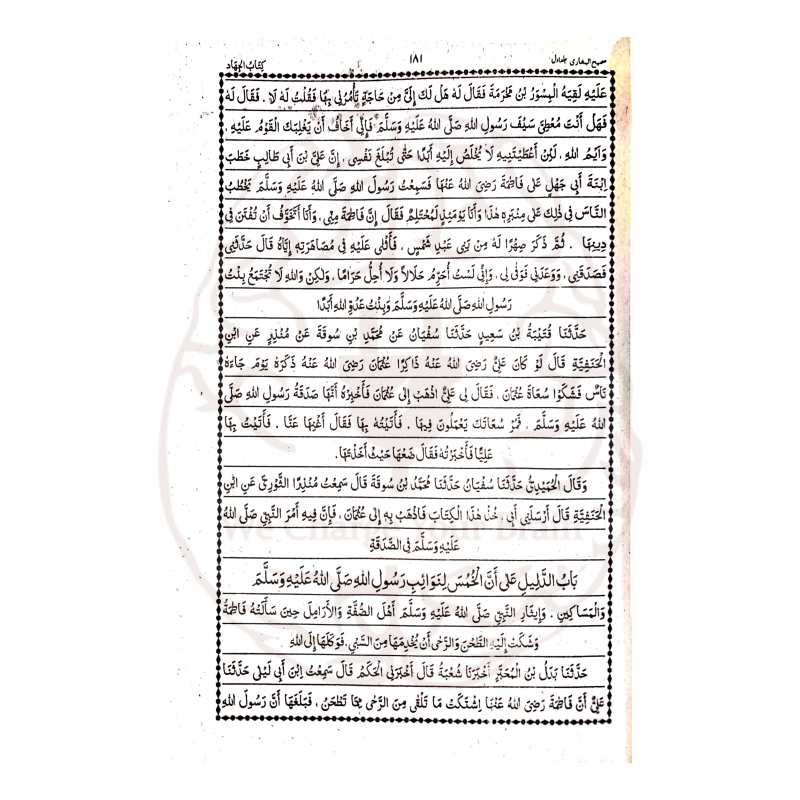 صحیح البخاری جلد اول ۱۸۱ كِتَابُ الجِهَاد
عَلَيْهِ لَقِيَهُ الْمِسْوَرُ بْنُ مَخْرَمَةَ فَقَالَ لَهُ هَلْ لَكَ إِلَىَّ مِنْ حَاجَةٍ تَأْمُرُنِي بِهَا فَقُلْتُ لَهُ لَا ، فَقَالَ لَهُ
فَهَلْ أَنْتَ مُعْطِىَّ سَيْفَ رَسُولِ اللهِ صَلَّى اللهُ عَلَيْهِ وَسَلَّمَ فَإِنِّي أَخَافُ أَنْ يَغْلِبَكَ الْقَوْمُ عَلَيْهِ ،
وَأَيْمُ اللهِ ، لَئِنْ أَعْطَيْتَنِيهِ لَا يُخْلَصُ إِلَيْهِ أَبَدًا حَتَّى تُبْلَغَ نَفْسِي ، إِنَّ عَلِىَّ بْنَ أَبِي طَالِبٍ خَطَبَ
ابْنَةَ أَبِي جَهْلٍ عَلَى فَاطِمَةَ رَضِىَ اللهُ عَنْهَا فَسَمِعْتُ رَسُولَ اللهِ صَلَّى اللهُ عَلَيْهِ وَسَلَّمَ يَخْطُبُ
النَّاسَ فِي ذٰلِكَ عَلَى مِنْبَرِهِ هٰذَا وَأَنَا يَوْمَئِذٍ لَمُحْتَلِمٌ فَقَالَ إِنَّ فَاطِمَةَ مِنِّي ، وَأَنَا أَتَخَوَّفُ أَنْ تُفْتَنَ فِي
دِينِهَا ، ثُمَّ ذَكَرَ صِهْرًا لَهُ مِنْ بَنِي عَبْدِ شَمْسٍ ، فَأَثْنَى عَلَيْهِ فِي مُصَاهَرَتِهِ إِيَّاهُ قَالَ حَدَّثَنِي
فَصَدَقَنِي ، وَوَعَدَنِي فَوَفَى لِي ، وَإِنِّي لَسْتُ أُحَرِّمُ حَلَالًا وَلَا أُحِلُّ حَرَامًا ، وَلٰكِنْ وَاللهِ لَا تَجْتَمِعُ بِنْتُ
رَسُولِ اللهِ صَلَّى اللهُ عَلَيْهِ وَسَلَّمَ وَبِنْتُ عَدُوِّ اللهِ أَبَدًا
حَدَّثَنَا قُتَيْبَةُ بْنُ سَعِيدٍ حَدَّثَنَا سُفْيَانُ عَنْ مُحَمَّدِ بْنِ سُوقَةَ عَنْ مُنْذِرٍ عَنِ ابْنِ
الْحَنَفِيَّةِ قَالَ لَوْ كَانَ عَلِيٌّ رَضِىَ اللهُ عَنْهُ ذَاكِرًا عُثْمَانَ رَضِىَ اللهُ عَنْهُ ذَكَرَهُ يَوْمَ جَاءَهُ
نَاسٌ فَشَكَوْا سُعَاةَ عُثْمَانَ ، فَقَالَ لِي عَلِيٌّ اذْهَبْ إِلَى عُثْمَانَ فَأَخْبِرْهُ أَنَّهَا صَدَقَةُ رَسُولِ اللهِ صَلَّى
اللهُ عَلَيْهِ وَسَلَّمَ ، فَمُرْ سُعَاتَكَ يَعْمَلُونَ فِيهَا ، فَأَتَيْتُهُ بِهَا فَقَالَ أَغْنِهَا عَنَّا ، فَأَتَيْتُ بِهَا
عَلِيًّا فَأَخْبَرْتُهُ فَقَالَ ضَعْهَا حَيْثُ أَخَذْتَهَا .
وَقَالَ الْحُمَيْدِيُّ حَدَّثَنَا سُفْيَانُ حَدَّثَنَا مُحَمَّدُ بْنُ سُوقَةَ قَالَ سَمِعْتُ مُنْذِرًا الثَّوْرِيَّ عَنِ ابْنِ
الْحَنَفِيَّةِ قَالَ أَرْسَلَنِي أَبِي ، خُذْ هٰذَا الْكِتَابَ فَاذْهَبْ بِهِ إِلَى عُثْمَانَ ، فَإِنَّ فِيهِ أَمْرَ النَّبِيِّ صَلَّى اللهُ
عَلَيْهِ وَسَلَّمَ فِي الصَّدَقَةِ
بَابُ الدَّلِيلِ عَلَى أَنَّ الْخُمُسَ لِنَوَائِبِ رَسُولِ اللهِ صَلَّى اللهُ عَلَيْهِ وَسَلَّمَ
وَالْمَسَاكِينِ ، وَإِيثَارِ النَّبِيِّ صَلَّى اللهُ عَلَيْهِ وَسَلَّمَ أَهْلَ الصُّفَّةِ وَالْأَرَامِلَ حِينَ سَأَلَتْهُ فَاطِمَةُ
وَشَكَتْ إِلَيْهِ الطَّحْنَ وَالرَّحَى أَنْ يُخْدِمَهَا مِنَ السَّبْيِ ، فَوَكَلَهَا إِلَى اللهِ
حَدَّثَنَا بَدَلُ بْنُ الْمُحَبَّرِ أَخْبَرَنَا شُعْبَةُ قَالَ أَخْبَرَنِي الْحَكَمُ قَالَ سَمِعْتُ ابْنَ أَبِي لَيْلَى حَدَّثَنَا
عَلِيٌّ أَنَّ فَاطِمَةَ رَضِىَ اللهُ عَنْهَا اشْتَكَتْ مَا تَلْقَى مِنَ الرَّحَى مِمَّا تَطْحَنُ ، فَبَلَغَهَا أَنَّ رَسُولَ اللهِ